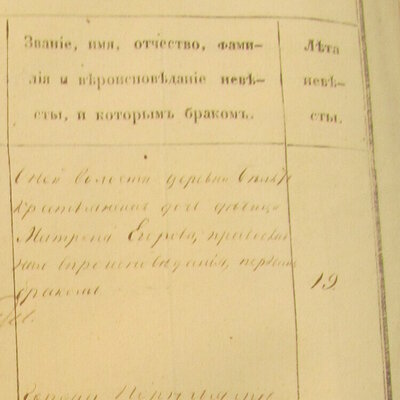 Званіе, имя, отчество, фами-
лія и вѣроисповѣданіе невѣ-
сты, и которымъ бракомъ.
Лѣта
невѣ-
сты.
волости деревни
дочь дѣвица
Матрена Егорова, православ
наго вѣроисповѣданія, первымъ
бракомъ
19